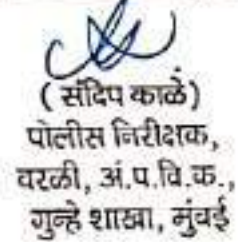 ( संदिप काळे)
पोलीस निरीक्षक,
वरळी, अं.प.वि.क.,
गुन्हे शाखा, मुंबई